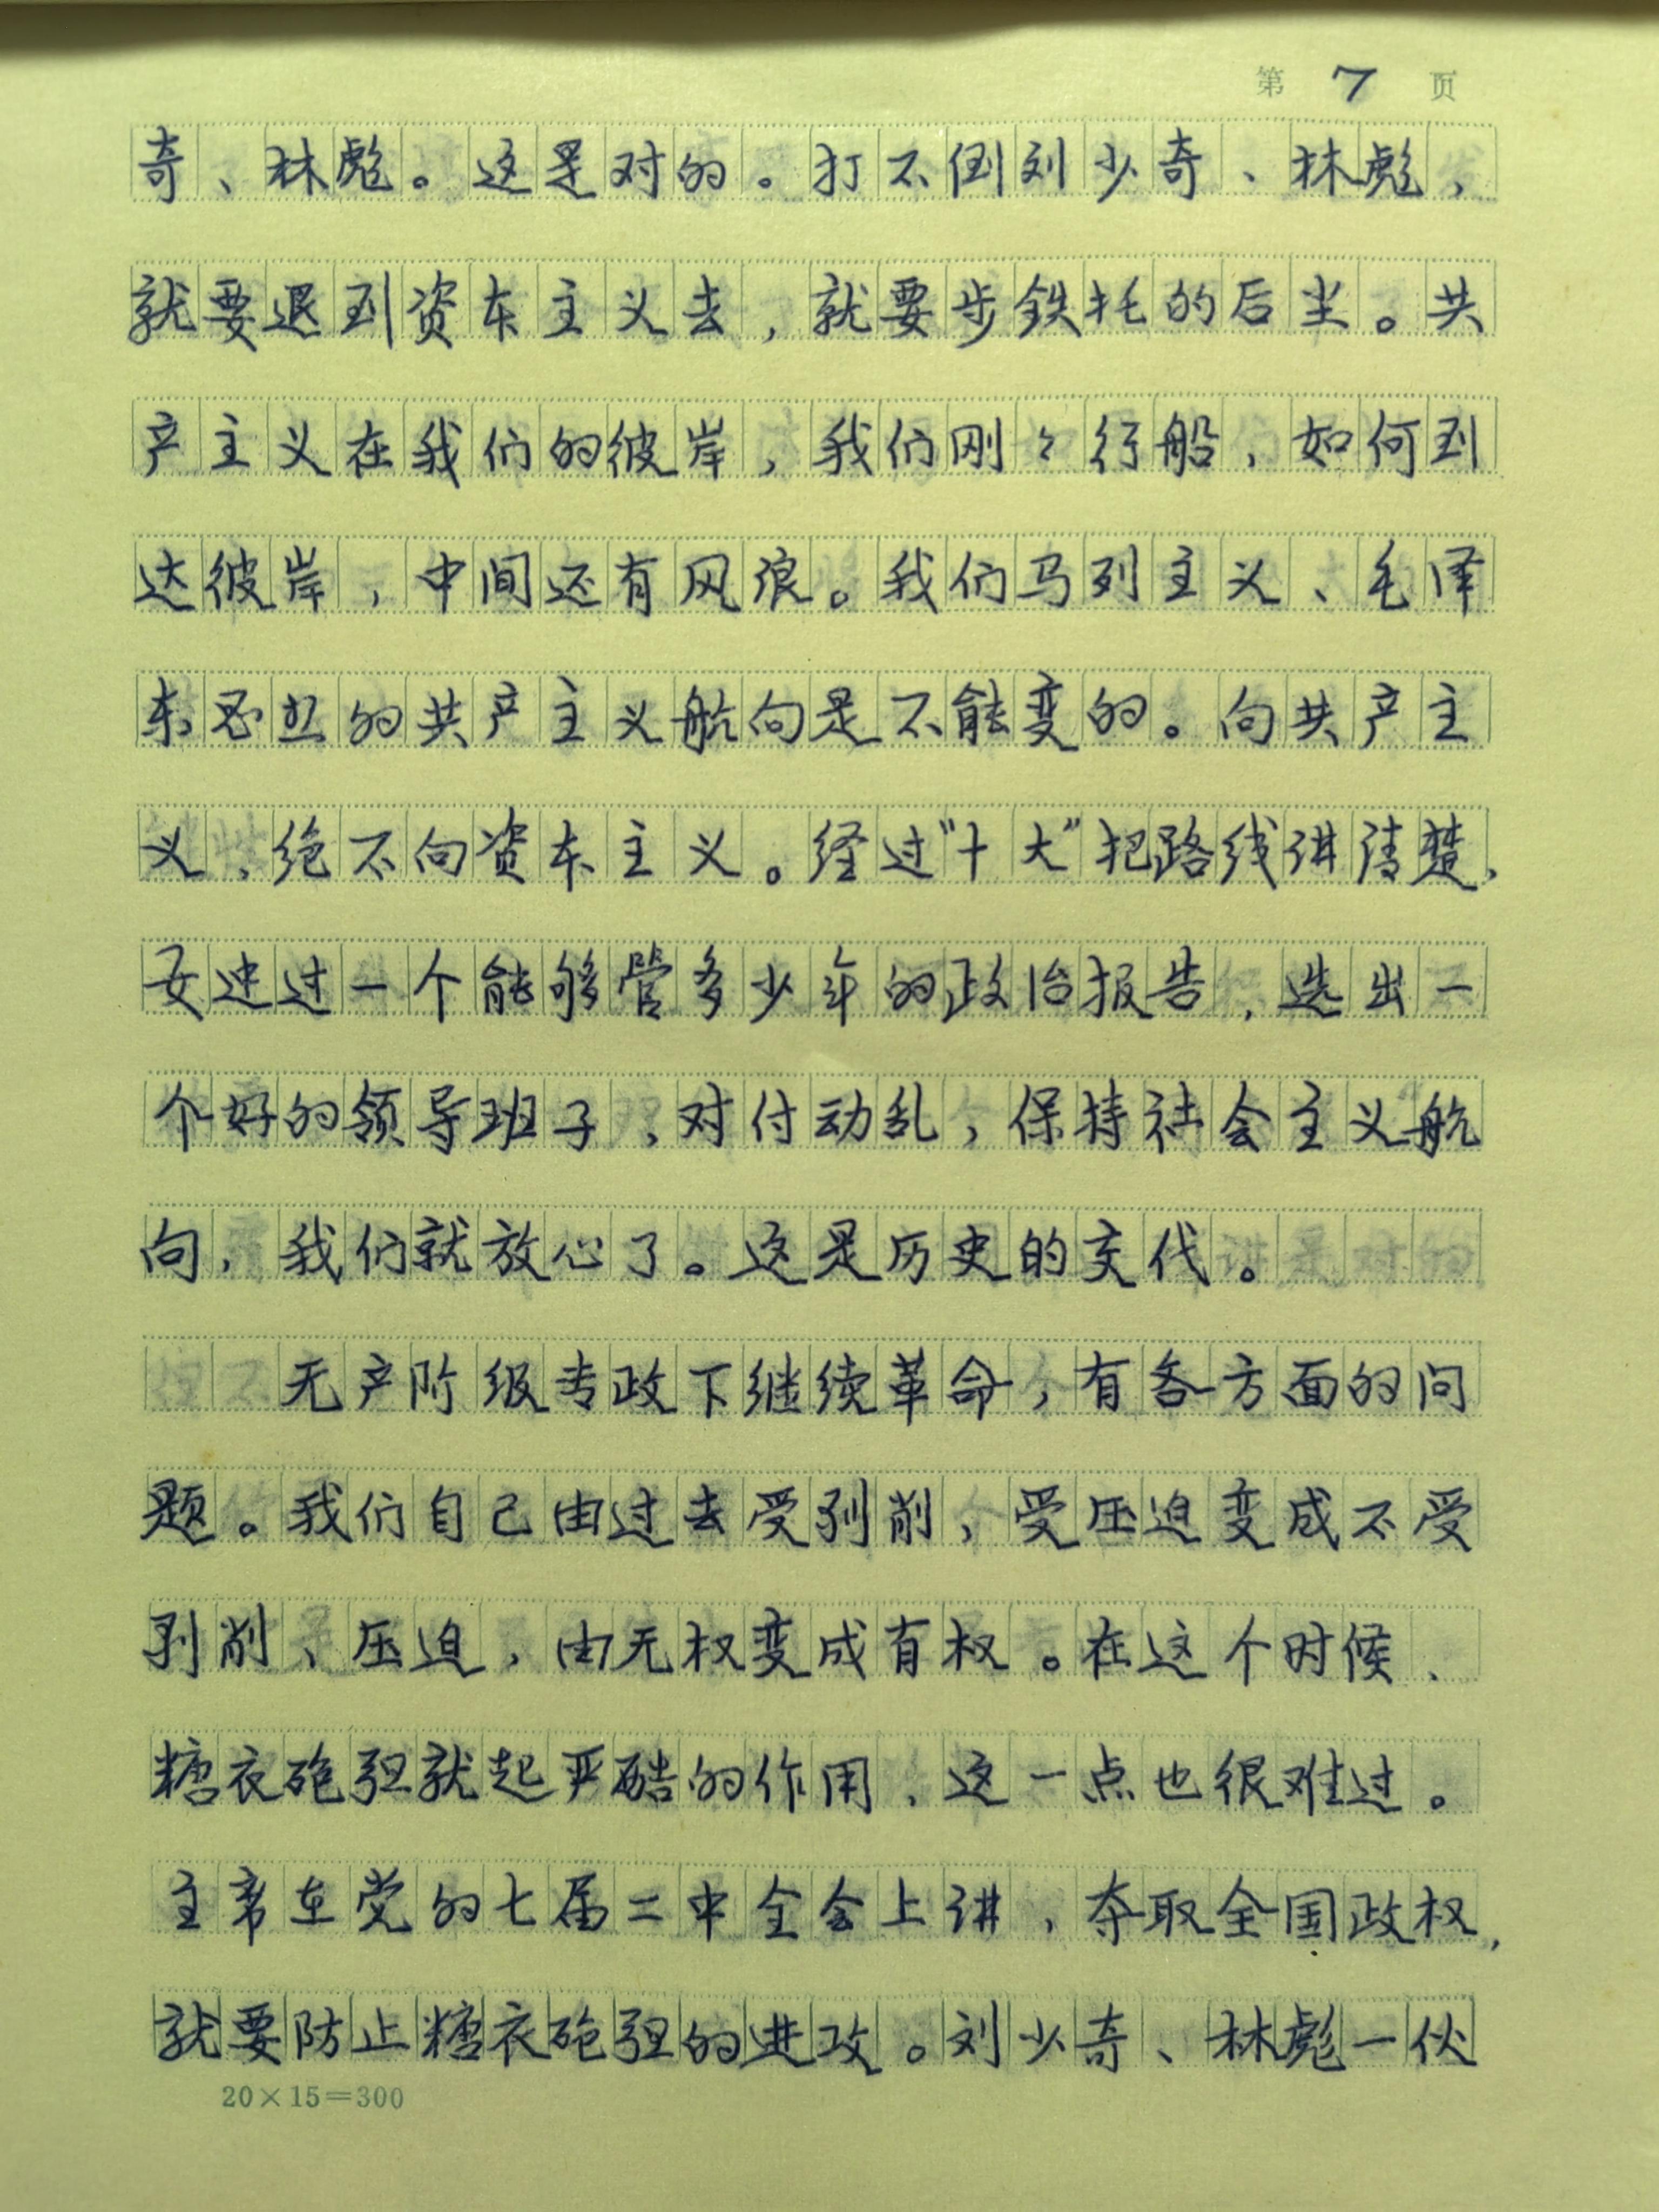 第 7 页
奇、林彪。这是对的。打不倒刘少奇、林彪,
就要退到资本主义去,就要步铁托的后尘。共
产主义在我们的彼岸,我们刚々行船,如何到
达彼岸,中间还有风浪。我们马列主义、毛泽
东思想的共产主义航向是不能变的。向共产主
义,绝不向资本主义。经过“十大”把路线讲清楚,
要通过一个能够管多少年的政治报告,选出一
个好的领导班子,对付动乱,保持社会主义航
向,我们就放心了。这是历史的交代。
无产阶级专政下继续革命,有各方面的问
题。我们自己由过去受剥削,受压迫变成不受
剥削、压迫,由无权变成有权。在这个时候,
糖衣砲弹就起严酷的作用,这一点也很难过。
主席在党的七届二中全会上讲,夺取全国政权,
就要防止糖衣砲弹的进攻。刘少奇、林彪一伙
20×15=300